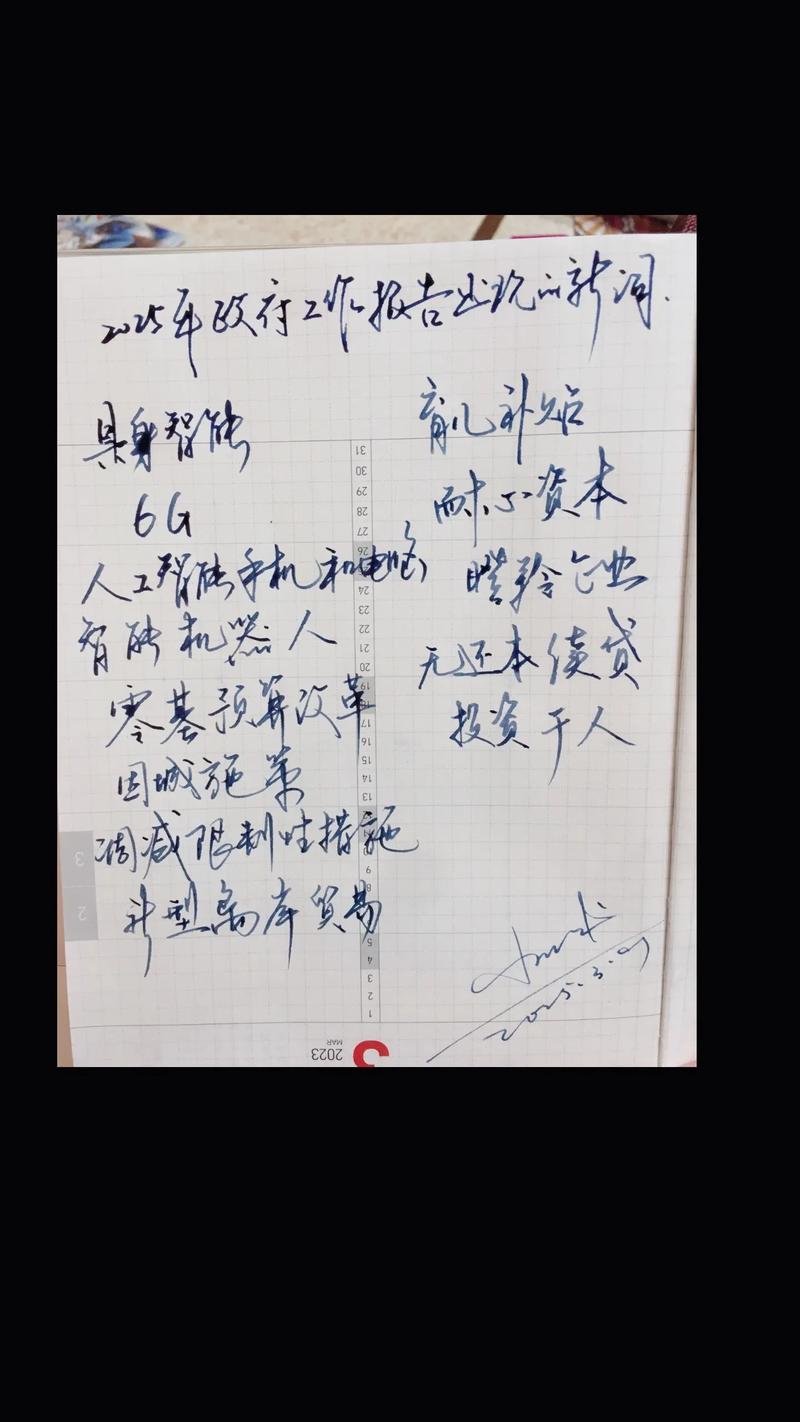 2025年政府工作报告出现的新词.
具身智能
6G
人工智能手机和电脑
智能机器人
零基预算改革
因城施策
调减限制性措施
新型离岸贸易
育儿补贴
耐心资本
瞪羚企业
无还本续贷
投资于人
2025.3.
31
30
29
28
27
26
24
23
22
21
20
19
18
17
16
15
14
13
9
8
5
4
3
2
1
3
2
2023
MAR
3